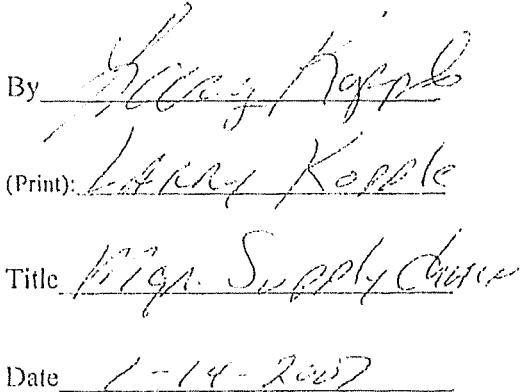 By Larry Kopple
(Print): Larry Kopple
Title Mgr. Supply Chain
Date 1-14-2007